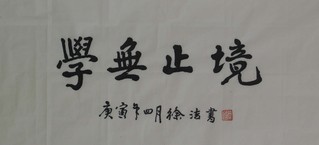 學無止境
庚寅年四月徐浩書